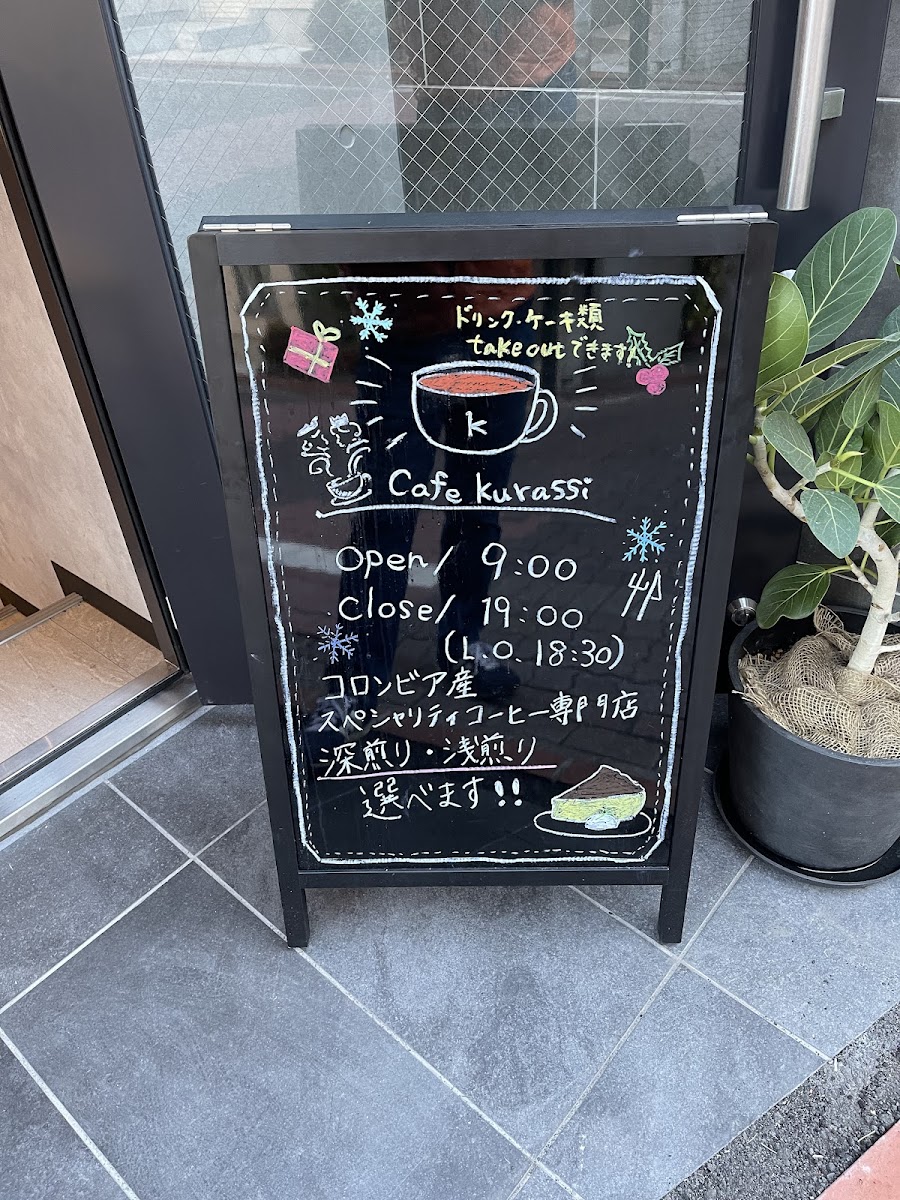 ドリンク・ケーキ類
take outできます!
k
Cafe kurassi
Open/ 9:00
Close/ 19:00
(L.O. 18:30)
コロンビア産
スペシャリティコーヒー専門店
深煎り・浅煎り
選べます!!